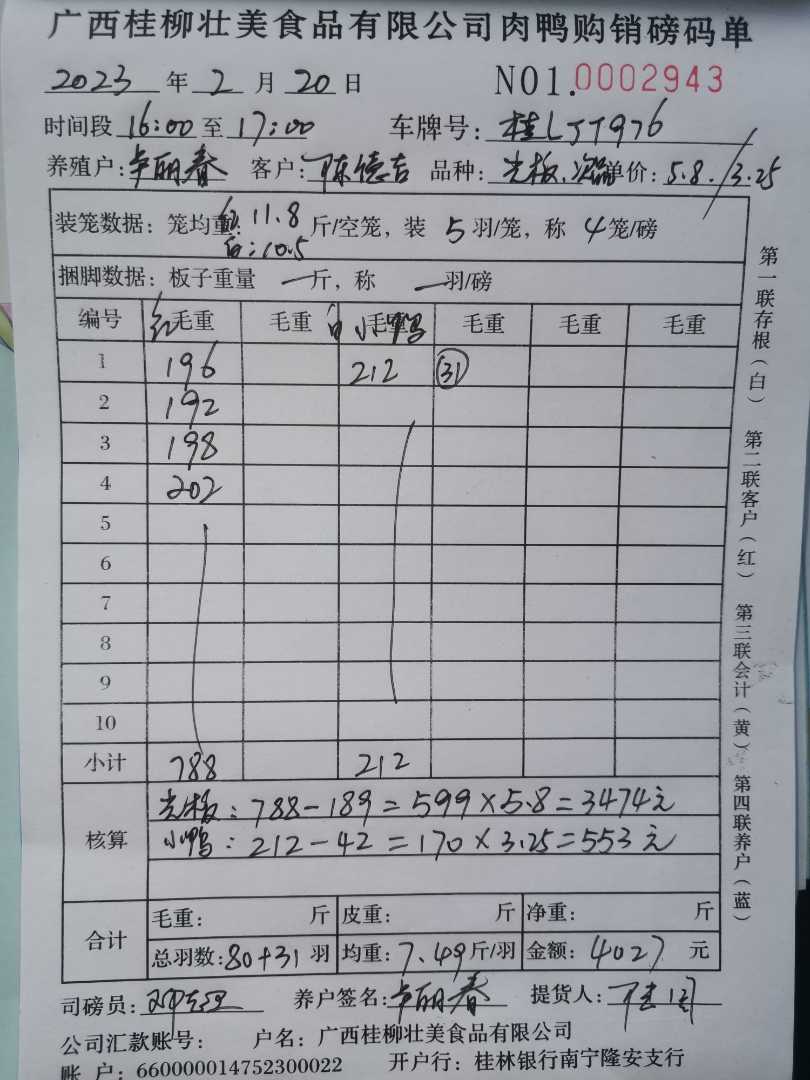 广西桂柳壮美食品有限公司肉鸭购销磅码单
2023 年 2 月 20 日 NO1.0002943
时间段 16:00 至 17:00 车牌号: 桂LJT976
养殖户: 卢丽春 客户: 陈德吉 品种: 光板、次鸭 单价: 5.8 / 3.25
装笼数据: 笼均重: 红 11.8 斤/空笼, 装 5 羽/笼, 称 4 笼/磅
白:10.5
捆脚数据: 板子重量 一 斤, 称 一 羽/磅
编号 红 毛重 毛重 白 小鸭 毛重 毛重 毛重 毛重
1 196 212 31
2 192
3 198
4 202
5
6
7
8
9
10
小计 788 212
核算 光板: 788-189=599×5.8=3474元
小鸭: 212-42=170×3.25=553元
合计 毛重: 斤 皮重: 斤 净重: 斤
总羽数: 80+31 羽 均重: 7.49 斤/羽 金额: 4027 元
司磅员: 养户签名: 卢丽春 提货人:
公司汇款账号: 户名: 广西桂柳壮美食品有限公司
账 户: 660000014752300022 开户行: 桂林银行南宁隆安支行
第一联存根(白) 第二联客户(红) 第三联会计(黄) 第四联养户(蓝)